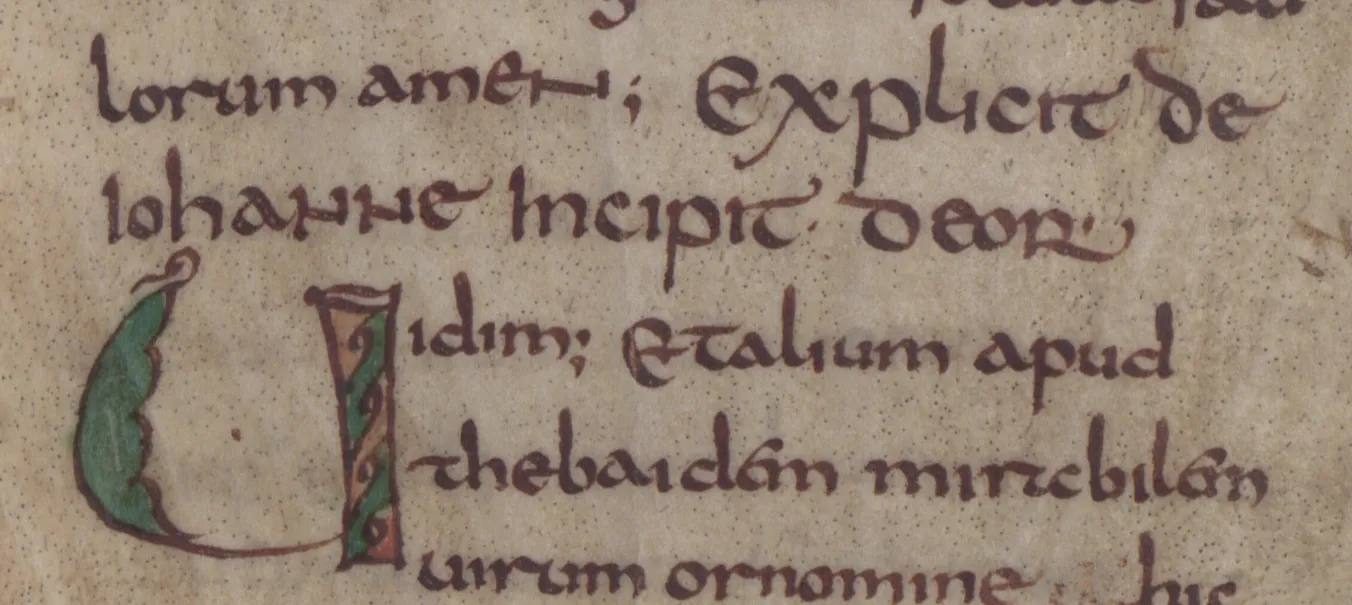 lorum amen; Explicit de
Iohanne Incipit de or
Uidim; Et alium apud
thebaidem mirabilem
uirum or nomine his